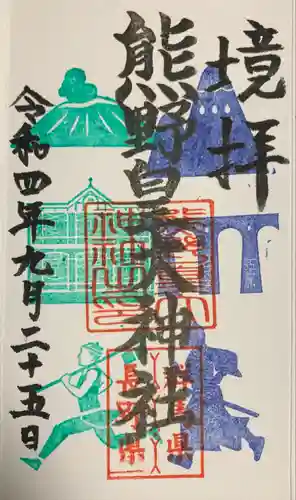 境拝
熊野皇大神社
令和四年九月二十五日
群馬県
長野県